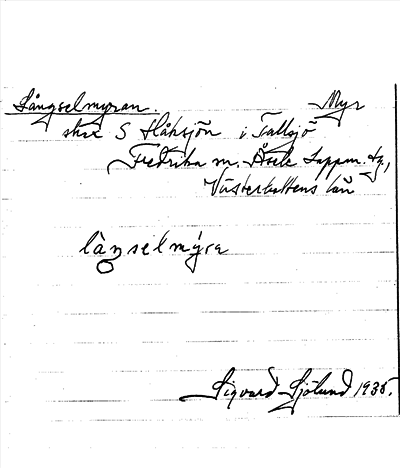 Långselmyran. Myr
strax S Håksjön i Tallsjö
Fredrika sn. Åsele Lappm. tg.,
Västerbottens län
långselmýra
Sigvard Sjölund 1935.